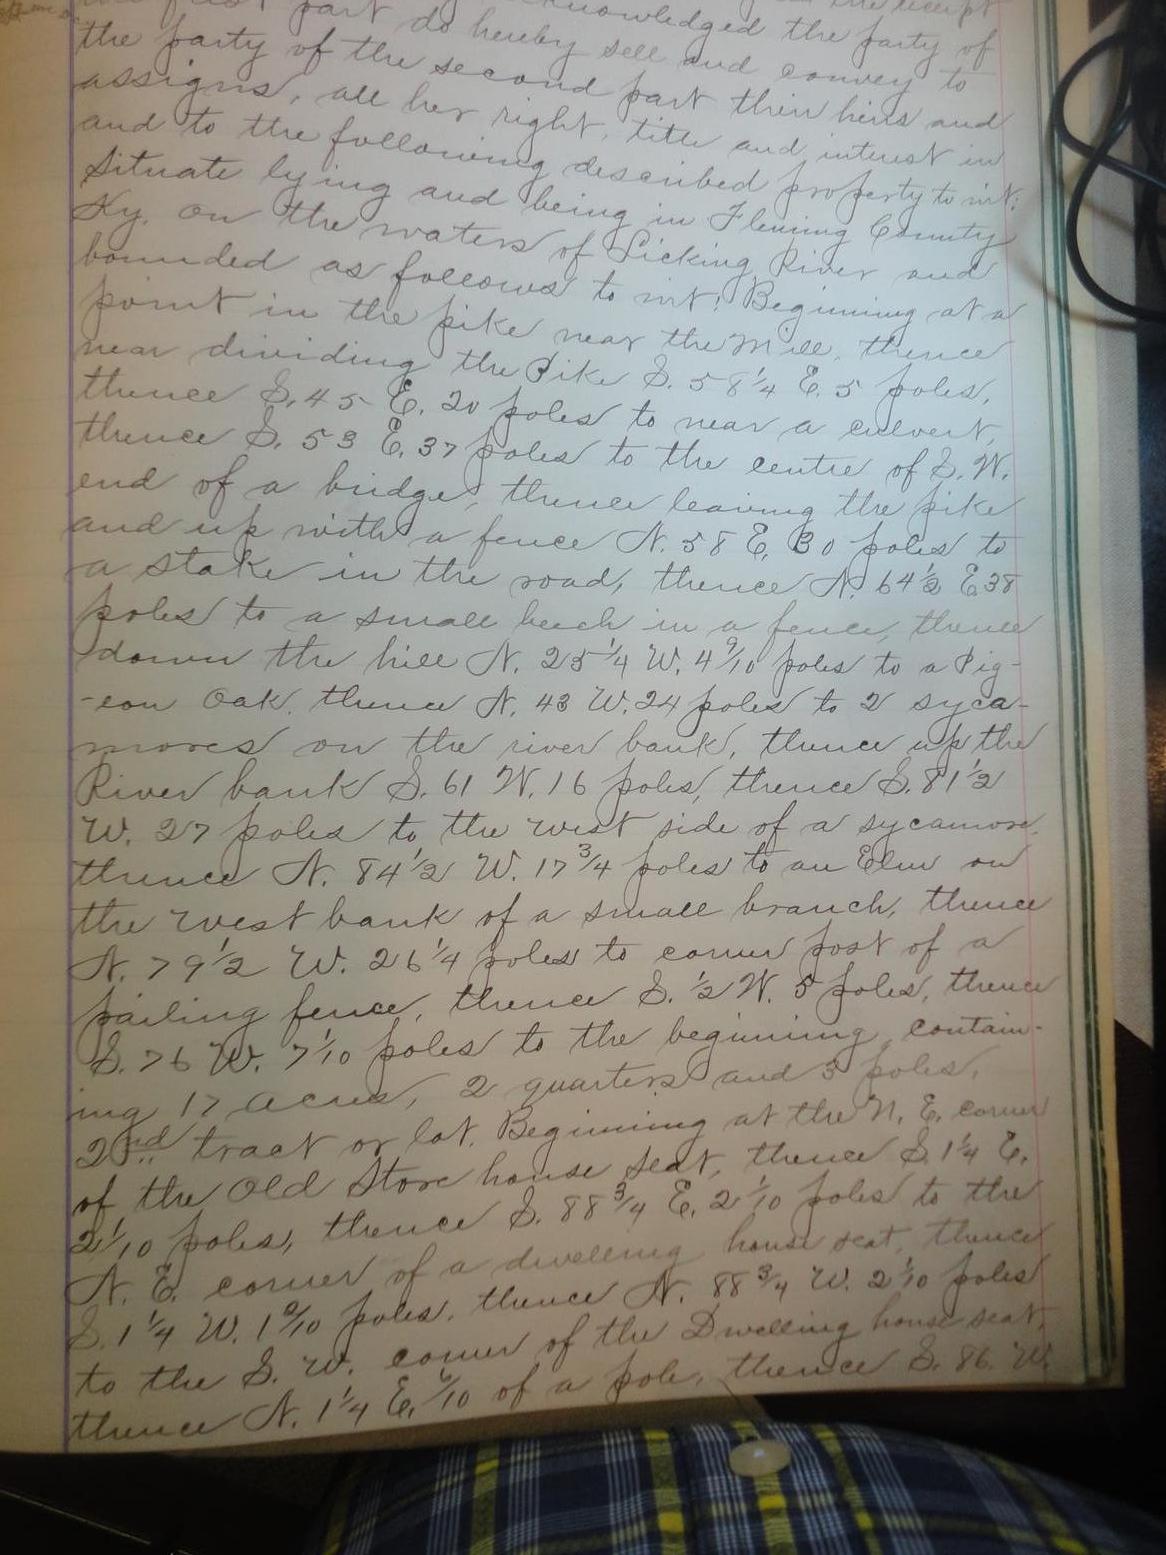 first part acknowledged the receipt
part do hereby sell and convey to the party of
the party of the second part their heirs and
assigns, all her right, title and interest in
and to the following described property to wit:
Situate lying and being in Fleming County
Ky. on the waters of Licking River and
bounded as follows to wit: Beginning at a
point in the pike near the Mill, thence
near dividing the Pike S. 58 1/4 E. 5 poles,
thence S. 45 E. 20 poles to near a culvert,
thence S. 53 E. 37 poles to the centre of S. W.
end of a bridge, thence leaving the pike
and up with a fence N. 58 E. 30 poles to
a stake in the road, thence N. 64 1/2 E 38
poles to a small beech in a fence, thence
down the hill N. 25 1/4 W. 4 9/10 poles to a Pig-
-eon Oak, thence N. 43 W. 24 poles to 2 syca-
mores on the river bank, thence up the
River bank S. 61 W. 16 poles, thence S. 81 1/2
W. 27 poles to the west side of a sycamore,
thence N. 84 1/2 W. 17 3/4 poles to an Elm on
the west bank of a small branch, thence
N. 79 1/2 W. 26 1/4 poles to corner post of a
pailing fence, thence S. 1/2 W. 5 poles, thence
S. 76 W. 7 1/10 poles to the beginning contain-
ing 17 acres, 2 quarters and 3 poles,
2nd tract or lot. Beginning at the N. E. corner
of the Old Store house seat, thence S. 1 1/4 E.
2 1/10 poles, thence S. 88 3/4 E. 2 1/10 poles to the
N. E. corner of a dwelling house seat, thence
S. 1 1/4 W. 1 poles, thence N. 88 3/4 W. 2 1/10 poles
to the S. W. corner of the Dwelling house seat,
thence N. 1 1/4 E. of a pole, thence S. 86 W.